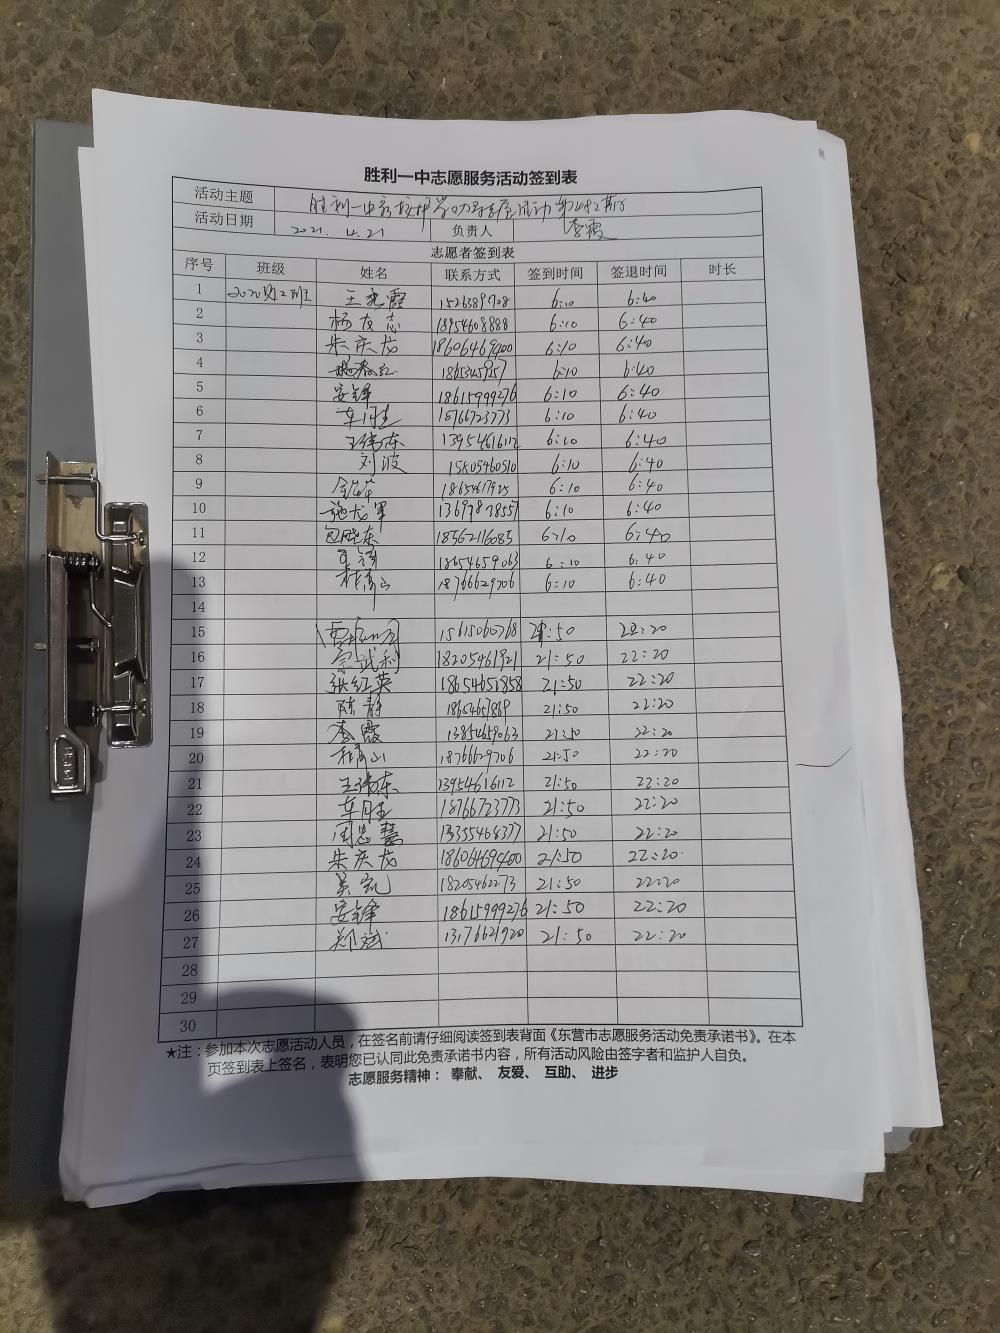 胜利一中志愿服务活动签到表
活动主题 胜利一中 活动第482期
活动日期 2021. 4. 21 负责人 李霞
志愿者签到表
序号 班级 姓名 联系方式 签到时间 签退时间 时长
1 2020级2班 王 霞 6:10 6:40
2 杨友志 18954608888 6:10 6:40
3 朱庆龙 18606469400 6:10 6:40
4 6:10 6:40
5 安锋 18615999276 6:10 6:40
6 车月生 18766723773 6:10 6:40
7 王伟东 13954616112 6:10 6:40
8 刘波 15805460510 6:10 6:40
9 6:10 6:40
10 施龙军 6:10 6:40
11 包晓东 18562116085 6:10 6:40
12 18654659063 6:10 6:40
13 18766629706 6:10 6:40
14
15 15615060768 21:50 22:20
16 宗武利 18205461921 21:50 22:20
17 张红英 18654651858 21:50 22:20
18 陈静 21:50 22:20
19 李霞 13854659063 21:50 22:20
20 18766629706 21:50 22:20
21 王伟东 13954616112 21:50 22:20
22 车月生 18766723773 21:50 22:20
23 周思慧 13355468377 21:50 22:20
24 朱庆龙 18606469400 21:50 22:20
25 吴凯 18205462273 21:50 22:20
26 安锋 18615999276 21:50 22:20
27 郑斌 13176621920 21:50 22:20
28
29
30
★注：参加本次志愿活动人员，在签名前请仔细阅读签到表背面《东营市志愿服务活动免责承诺书》。在本
页签到表上签名，表明您已认同此免责承诺书内容，所有活动风险由签字者和监护人自负。
志愿服务精神： 奉献、 友爱、 互助、 进步